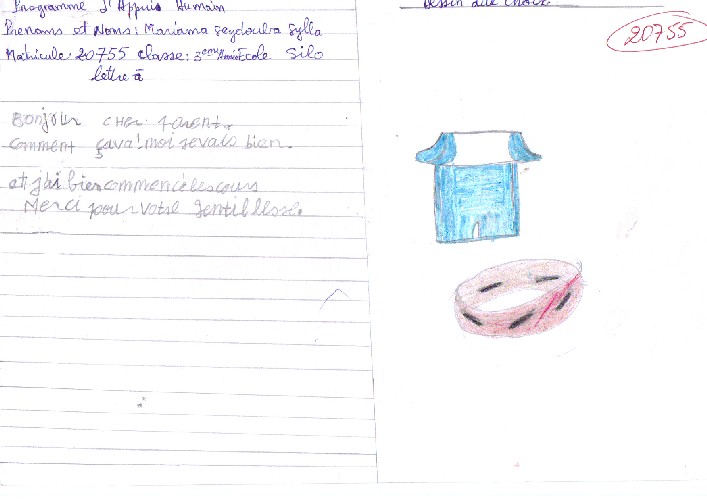 Programme d'Appuis Humain
Prenoms et Noms: Mariama Seydouba Sylla
Matricule: 20755 classe: 3eme Année Ecole Silo
lettre à
Bonjour cher parent.
comment çava! moi jevais bien.
et j'ai bien commencé les cours
Merci pour votre gentillesse.
Dessin au choix
20755